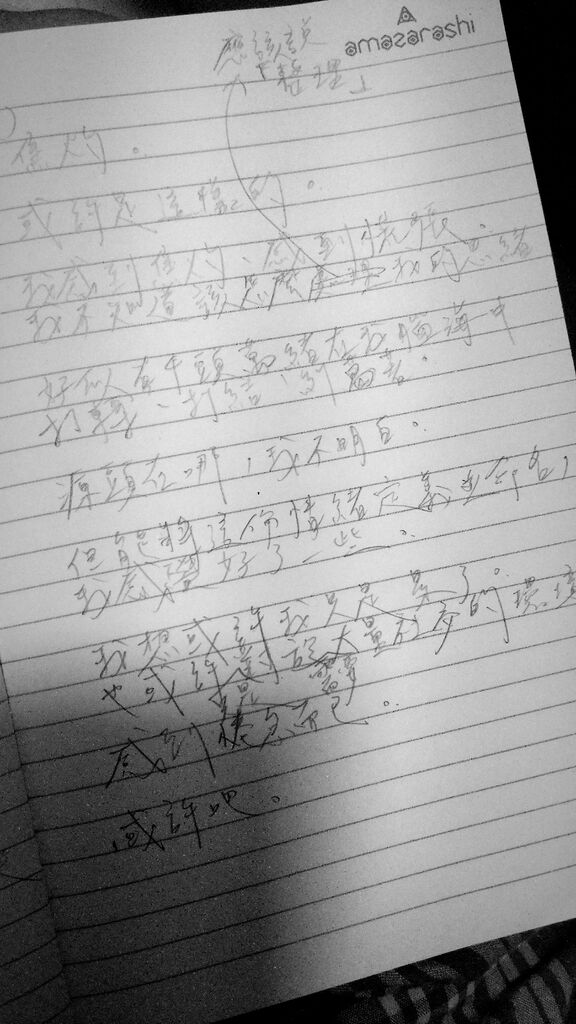 amazarashi
應該說
「整理」
焦灼。
或許是這樣的。
我感到焦灼、感到慌張。
我不知道該怎麼 我的思緒
好似有千頭萬緒在我腦海中
打轉、打結、 著。
源頭在哪,我不明白。
但能將這份情緒定義並命名,
我感覺好了一些。
我想或許我只是累了。
也或許對 大量 的環境
感到 而已。
或許吧。